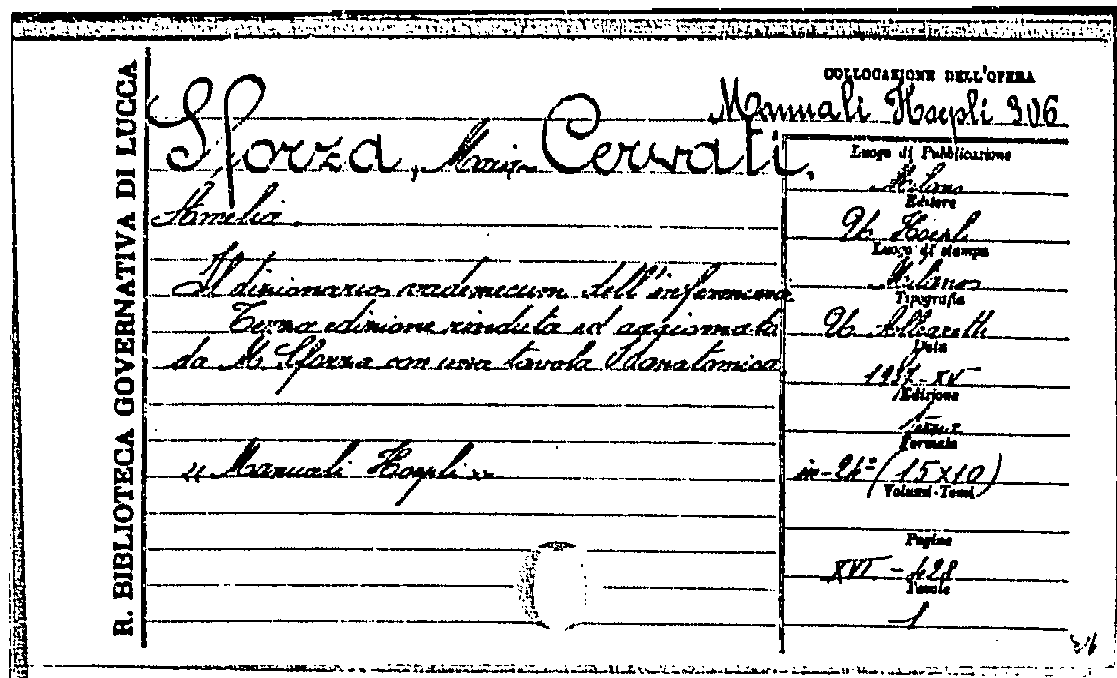 R. BIBLIOTECA GOVERNATIVA DI LUCCA
COLLOCAZIONE DELL'OPERA
Manuali Hoepli 306
Sforza, Maria Cervati,
Amelia.
Il dizionario vademecum dell'infermiera
Terza edizione riveduta ed aggiornata
da M. Sforza con una tavola
« Manuali Hoepli »
Luogo di Pubblicazione
Milano
Editore
U. Hoepli
Luogo di stampa
Milano
Tipografia
U. Allegretti
Data
1937-XV
Edizione
Formato
in-24º (15x10)
Volumi-Tomi
Pagine
XVI - 428
Tavole
1